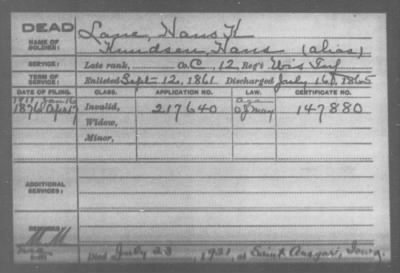 DEAD
NAME OF SOLDIER:
Lane, Hans K
Knudsen, Hans (alias)
SERVICE:
Late rank, Co. C, 12, Reg't Wis Inf
TERM OF SERVICE:
Enlisted Sept 12, 1861 Discharged July 16, 1865
DATE OF FILING. CLASS. APPLICATION NO. LAW. CERTIFICATE NO.
1876 Apr 17 Invalid, 217640 147880
Widow,
Minor,
ADDITIONAL SERVICES:
Died July 23, 1921, at Saint Ansgar, Iowa.